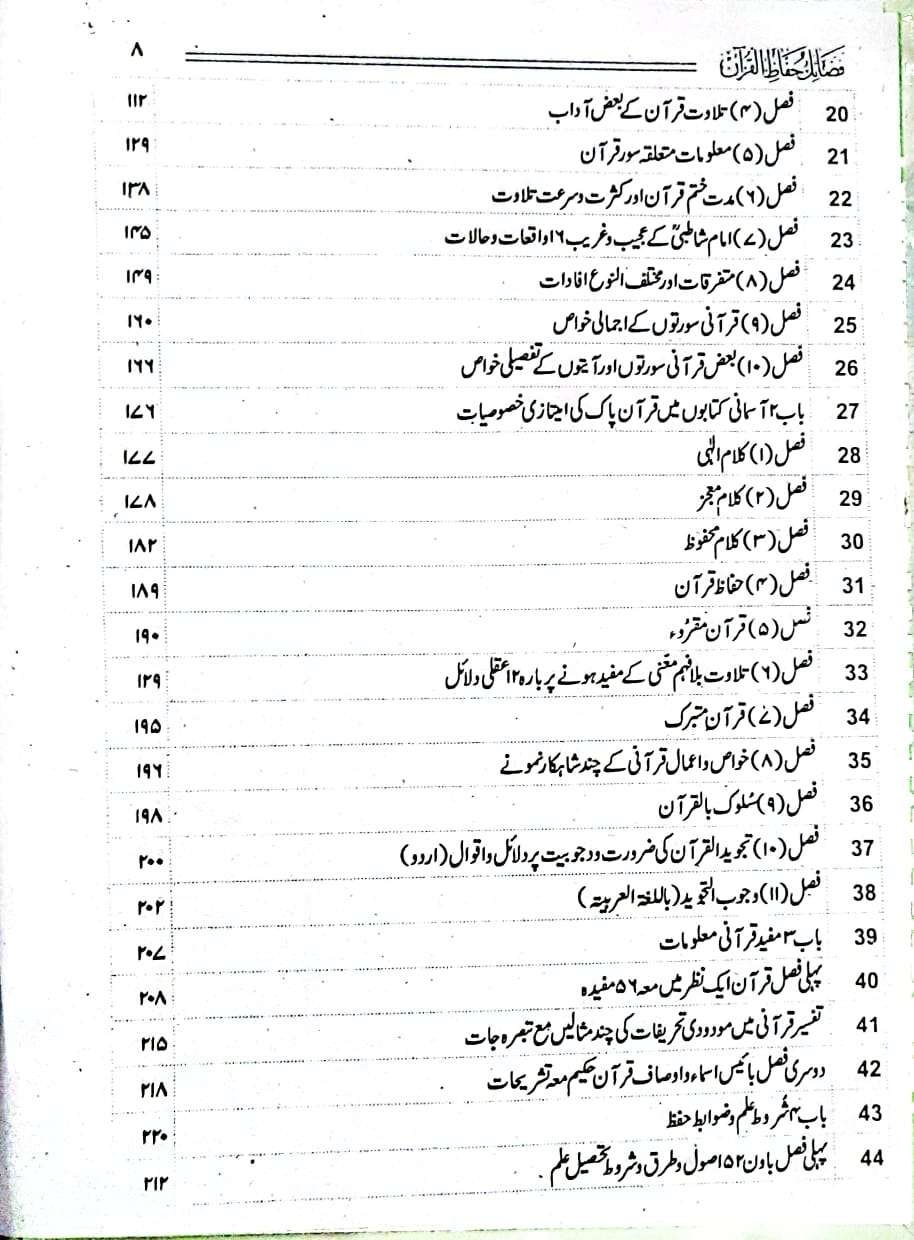 فضائل حفاظ القرآن ۸
20 فصل (۴) تلاوت قرآن کے بعض آداب ۱۱۲
21 فصل (۵) معلومات متعلقہ سور قرآن ۱۲۹
22 فصل (۶) مدت ختم قرآن اور کثرت و سرعت تلاوت ۱۳۸
23 فصل (۷) امام شاطبیؒ کے عجیب و غریب ۱۶ واقعات و حالات ۱۴۵
24 فصل (۸) متفرقات اور مختلف النوع افادات ۱۴۹
25 فصل (۹) قرآنی سورتوں کے اجمالی خواص ۱۶۰
26 فصل (۱۰) بعض قرآنی سورتوں اور آیتوں کے تفصیلی خواص ۱۶۶
27 باب ۲ آسمانی کتابوں میں قرآن پاک کی امتیازی خصوصیات ۱۷۶
28 فصل (۱) کلام الٰہی ۱۷۷
29 فصل (۲) کلام معجز ۱۷۸
30 فصل (۳) کلام محفوظ ۱۸۲
31 فصل (۴) حفاظ قرآن ۱۸۹
32 نسل (۵) قرآن مقروء ۱۹۰
33 فصل (۶) تلاوت بلا فہم معنی کے مفید ہونے پر بارہ ۱۲ عقلی دلائل ۱۲۹
34 فصل (۷) قرآنِ متبرک ۱۹۵
35 فصل (۸) خواص و اعمال قرآنی کے چند شاہکار نمونے ۱۹۶
36 فصل (۹) سُلوک بالقرآن ۱۹۸
37 فصل (۱۰) تجوید القرآن کی ضرورت و دجوبیت پر دلائل و اقوال (اردو) ۲۰۰
38 فصل (۱۱) وجوب التجوید (باللغۃ العربیتہ) ۲۰۲
39 باب ۳ مفید قرآنی معلومات ۲۰۷
40 پہلی فصل قرآن ایک نظر میں معہ ۵۶ مفیدہ ۲۰۸
41 تفسیر قرآنی میں مودودی تحریفات کی چند مثالیں مع تبصرہ جات ۲۱۵
42 دوسری فصل بائیس اسماء و اوصاف قرآن حکیم معہ تشریحات ۲۱۸
43 باب ۴ شروط علم و ضوابط حفظ ۲۲۰
44 پہلی فصل باون ۵۲ اصول و طرق و شروط تحصیل علم ۲۱۲